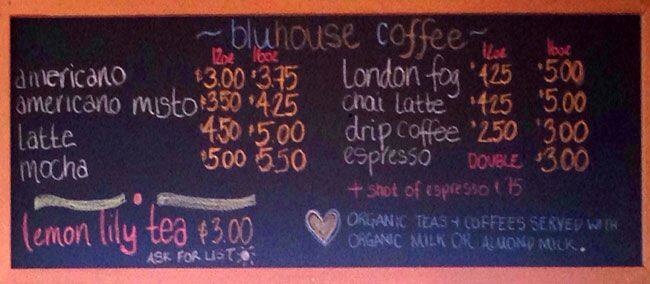 ~ bluhouse coffee ~
12oz 16oz
americano $3.00 $3.75
americano misto $3.50 $4.25
latte $4.50 $5.00
mocha $5.00 $5.50
12oz 16oz
london fog $4.25 $5.00
chai latte $4.25 $5.00
drip coffee $2.50 $3.00
espresso DOUBLE $3.00
+ shot of espresso ¢75
lemon lily tea $3.00
ASK FOR LIST
ORGANIC TEAS + COFFEES SERVED WITH
ORGANIC MILK OR ALMOND MILK.